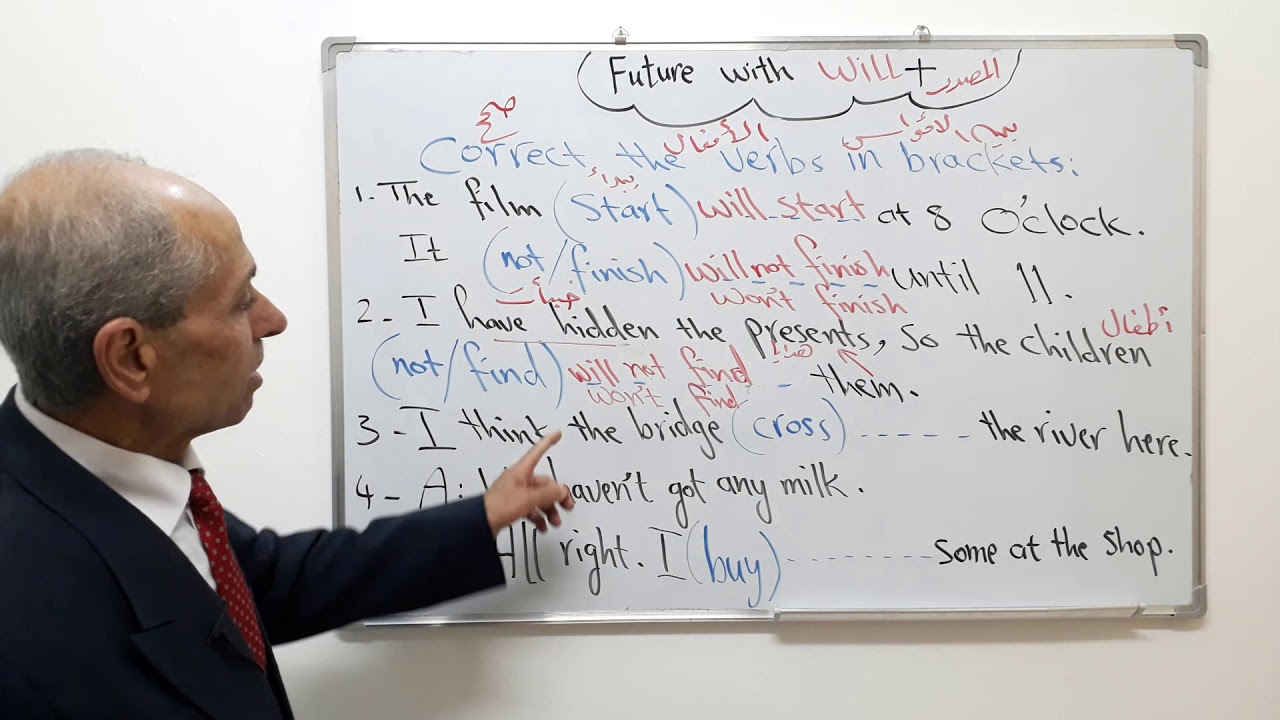 Future with will + المصدر
صحح الأفعال بين الأقواس
Correct the verbs in brackets:
يبدأ
1. The film (start) will start at 8 O'clock.
It (not/finish) will not finish until 11.
خبأت won't finish
2 - I have hidden the presents, so the children أطفال
هدايا
(not/find) will not find - them.
won't find
3 - I think the bridge (cross) ------ the river here.
4 - A: haven't got any milk.
All right. I (buy) --------- some at the shop.